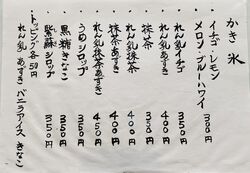 かき氷
・イチゴ・レモン
メロン・ブルーハワイ 300円
・れん乳イチゴ 350円
・抹茶 350円
・れん乳抹茶 400円
・抹茶あずき 400円
・れん乳抹茶あずき 450円
・うめシロップ 350円
・黒糖きなこ 350円
・紫蘇シロップ 350円
・トッピング各50円
れん乳 あずき バニラアイス きなこ